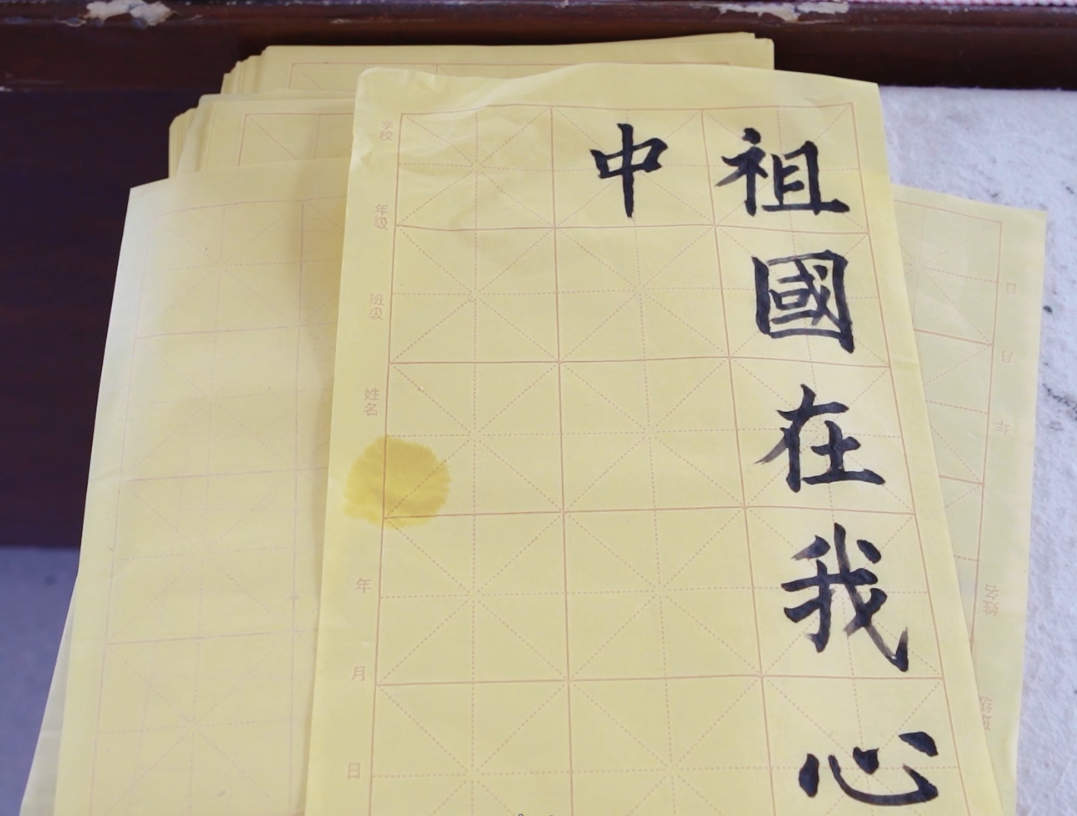 祖國在我心
中
学校
年级
班级
姓名
年
月
日
日
月
年
姓名
班级